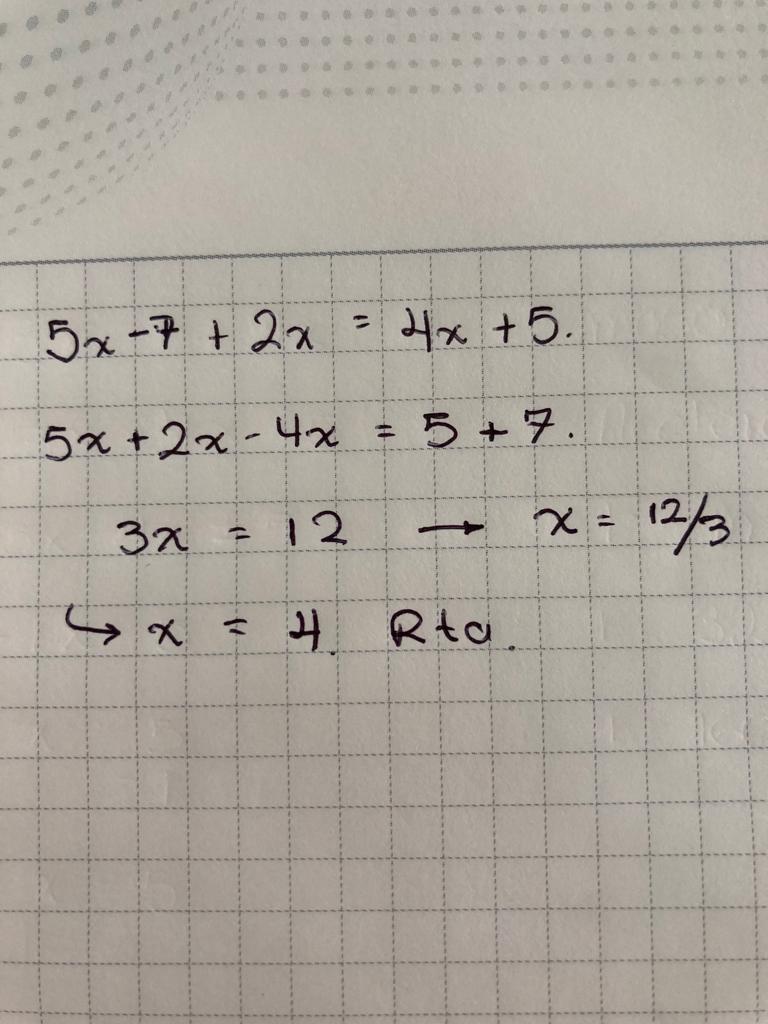 5x - 7 + 2x = 4x + 5.
5x + 2x - 4x = 5 + 7.
3x = 12 → x = 12/3
↳ x = 4. Rta.